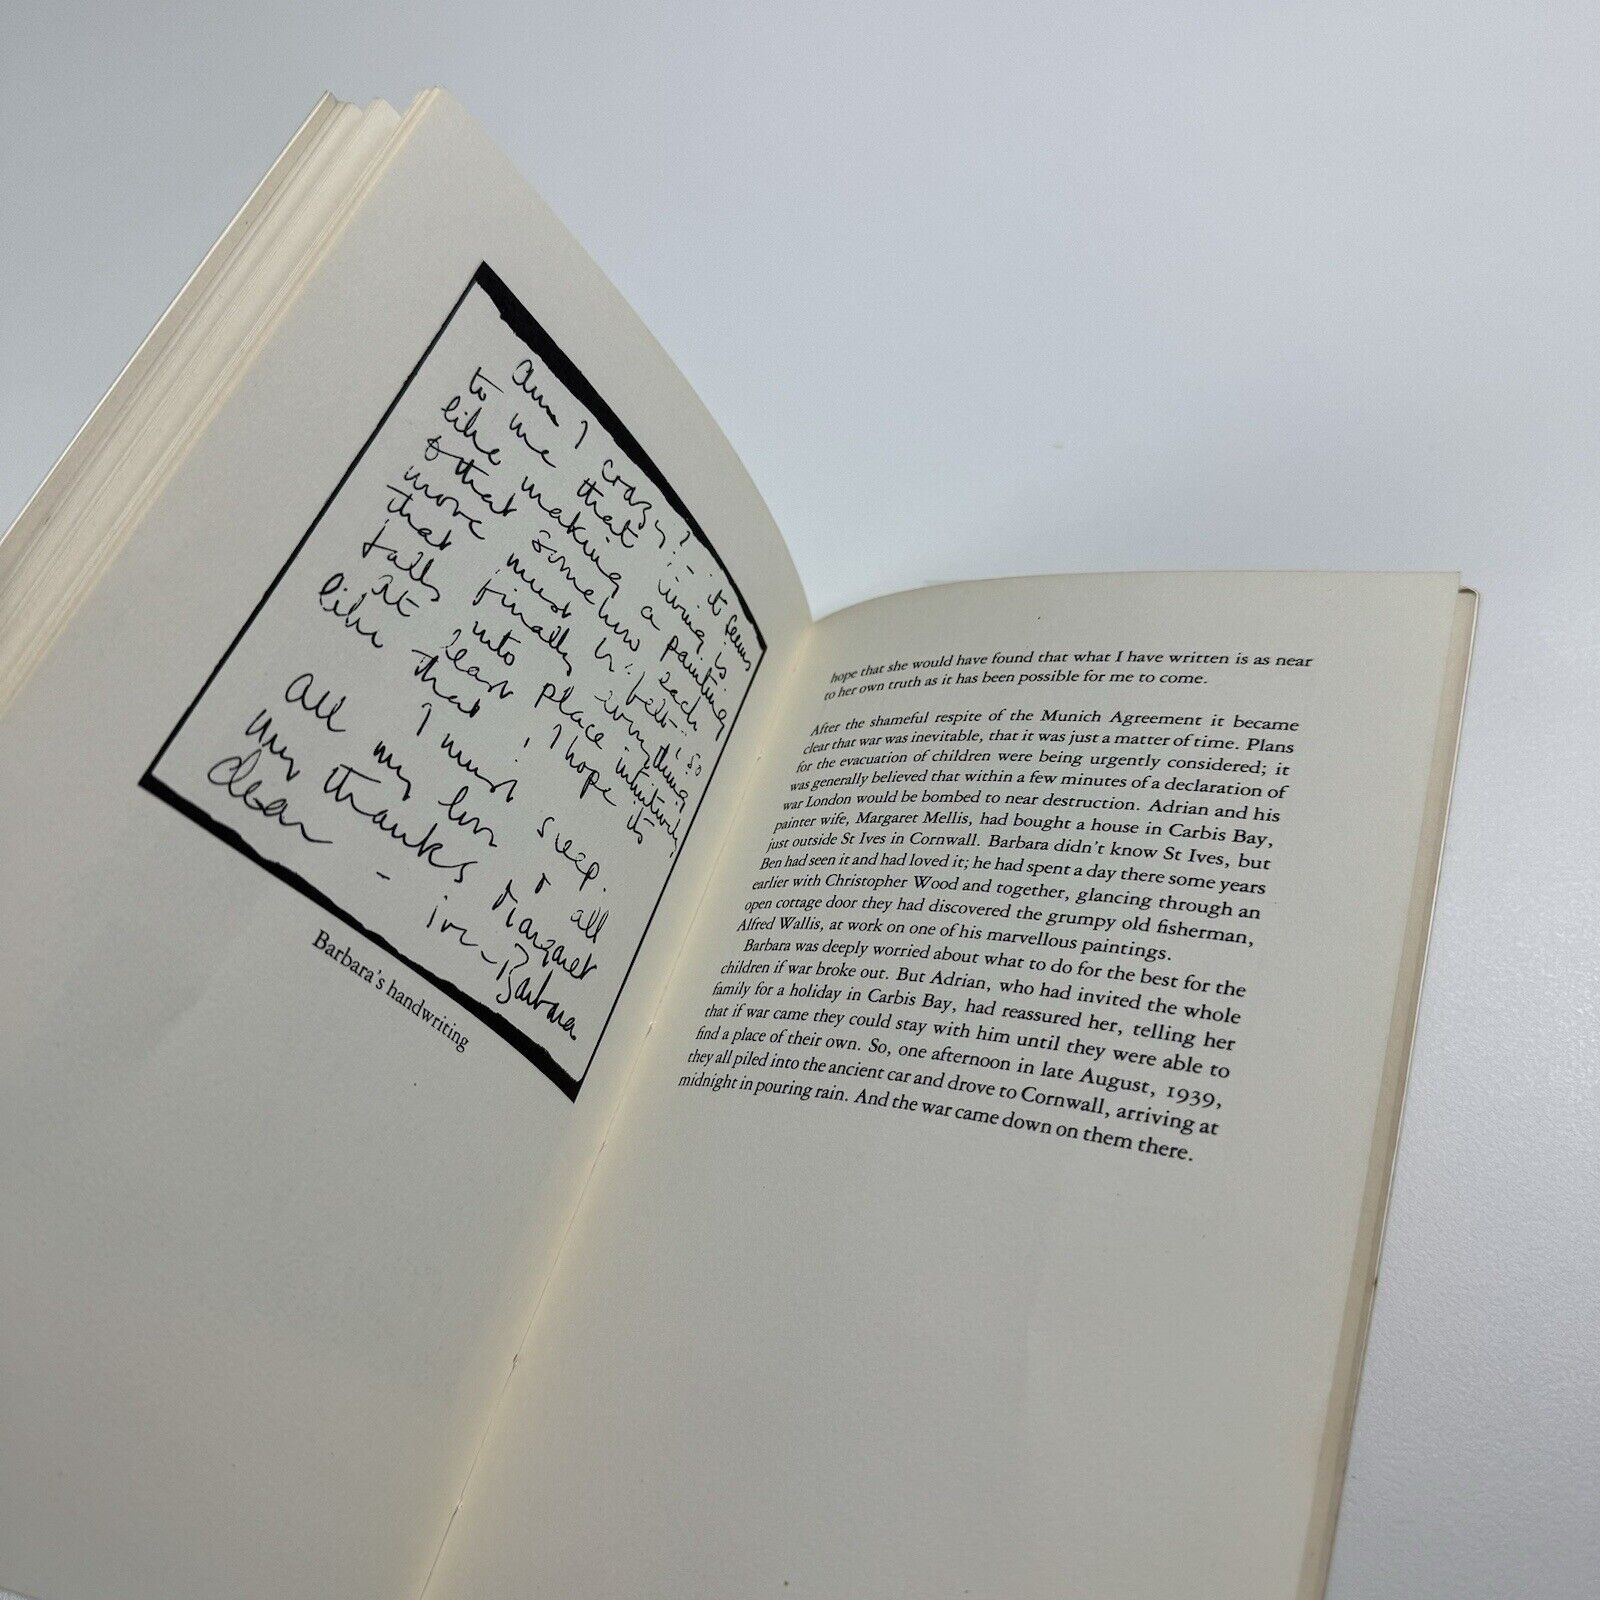 Am I crazy? - it seems
to me that living is
like making a painting
& that somehow each
move must be better, so
that finally everything
falls into place intuitively,
At least, I hope its
like that I must sleep.
All my love & all
my thanks Margaret
dear -
love - Barbara
Barbara's handwriting
hope that she would have found that what I have written is as near
to her own truth as it has been possible for me to come.
After the shameful respite of the Munich Agreement it became
clear that war was inevitable, that it was just a matter of time. Plans
for the evacuation of children were being urgently considered; it
was generally believed that within a few minutes of a declaration of
war London would be bombed to near destruction. Adrian and his
painter wife, Margaret Mellis, had bought a house in Carbis Bay,
just outside St Ives in Cornwall. Barbara didn't know St Ives, but
Ben had seen it and had loved it; he had spent a day there some years
earlier with Christopher Wood and together, glancing through an
open cottage door they had discovered the grumpy old fisherman,
Alfred Wallis, at work on one of his marvellous paintings.
Barbara was deeply worried about what to do for the best for the
children if war broke out. But Adrian, who had invited the whole
family for a holiday in Carbis Bay, had reassured her, telling her
that if war came they could stay with him until they were able to
find a place of their own. So, one afternoon in late August, 1939,
they all piled into the ancient car and drove to Cornwall, arriving at
midnight in pouring rain. And the war came down on them there.